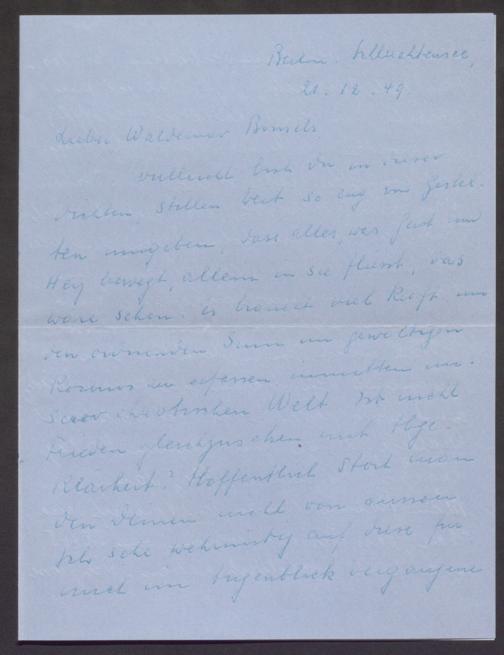 Berlin. Schlachtensee,
21. 12. 49
Lieber Waldemar Bonsels
vielleicht bist du in dieser
stillen Zeit so eng von Gestal-
ten umgeben, dass alles, was Geist und
Herz bewegt, allein in sie fliesst, das
wäre schön. Es braucht viel Kraft um
den ordnenden Sinn im gewaltigen
Kosmos zu erfassen inmitten un-
serer chaotischen Welt. Ist nicht
Frieden gleichzusetzen mit
Klarheit? Hoffentlich stört man
den Deinen nicht von aussen
Ich sehe wehmütig auf diese für
mich im Augenblick vergangene